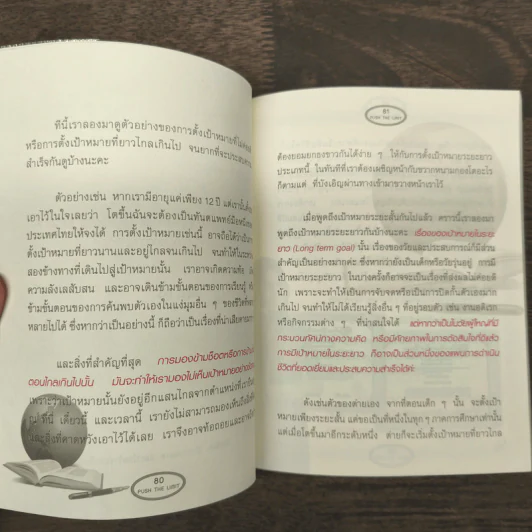 ทีนี้เราลองมาดูตัวอย่างของการตั้งเป้าหมายที่ไม่
หรือการตั้งเป้าหมายที่ยาวไกลเกินไป จนยากที่จะประสบความ
สำเร็จกันดูบ้างนะคะ
ตัวอย่างเช่น หากเรามีอายุแค่เพียง 12 ปี แต่เรานั้น
เอาไว้ในใจเลยว่า โตขึ้นฉันจะต้องเป็นทันตแพทย์มือหนึ่ง
ประเทศไทยให้จงได้ การตั้งเป้าหมายเช่นนี้ อาจถือได้ว่าเป็น
ตั้งเป้าหมายที่ยาวนานและอยู่ไกลจนเกินไป จนทำให้ใน
สองข้างทางที่เดินไปสู่เป้าหมายนั้น เราอาจเกิดความท้อ
ความลังเลสับสน และอาจเดินข้ามขั้นตอนของการเรียนรู้ หรือ
ข้ามขั้นตอนของการค้นพบตัวเองในแง่มุมอื่น ๆ ของชีวิต
หลายไปได้ ซึ่งหากว่าเป็นอย่างนี้ ก็ถือว่าเป็นเรื่องที่น่าเสียดาย
และสิ่งที่สำคัญที่สุด การมองข้ามช็อตหรือการ
ตอนไกลเกินไปนั้น มันจะทำให้เรามองไม่เห็นเป้าหมายอย่าง
เพราะว่าเป้าหมายนั้นยังอยู่อีกแสนไกลจากตำแหน่งที่เรา
ณ ที่นี่ เดี๋ยวนี้ และเวลานี้ เรายังไม่สามารถมองเห็นถึง
และสิ่งที่คาดหวังเอาไว้ได้เลย เราจึงอาจท้อถอยและ
80
PUSH THE LIMIT
81
PUSH THE LIMIT
ต้องยอมยกธงขาวกันได้ง่าย ๆ ให้กับการตั้งเป้าหมายระยะยาว
ประเภทนี้ ในทันทีที่เราต้องเผชิญหน้ากับขวากหนามกองโตอะไร
ก็ตามแต่ ที่บังเอิญผ่านทางเข้ามาขวางหน้าเราไว้
เมื่อพูดถึงเป้าหมายระยะสั้นกันไปแล้ว คราวนี้เราลองมา
พูดถึงเป้าหมายระยะยาวกันบ้างนะคะ เรื่องของเป้าหมายในระยะ
ยาว (Long term goal) นั้น เรื่องของวัยและประสบการณ์ก็มีส่วน
สำคัญเป็นอย่างมากค่ะ ซึ่งหากว่ายังเป็นเด็กหรือวัยรุ่นอยู่ การมี
เป้าหมายระยะยาว ในบางครั้งก็อาจจะเป็นเรื่องที่ส่งผลไม่ค่อยดี
นัก เพราะจะทำให้เป็นการจับจดหรือเป็นการปิดกั้นตัวเองมาก
เกินไป จนทำให้ไม่ได้เรียนรู้สิ่งอื่น ๆ ที่อยู่รอบตัว เช่น งานอดิเรก
หรือกิจกรรมต่าง ๆ ที่น่าสนใจได้ แต่หากว่าเป็นในวัยผู้ใหญ่ที่มี
กระบวนทัศน์ทางความคิด หรือมีศักยภาพในการตัดสินใจที่ดีแล้ว
การมีเป้าหมายในระยะยาว ก็อาจเป็นส่วนหนึ่งของแผนการดำเนิน
ชีวิตที่ยอดเยี่ยมและประสบความสำเร็จได้ค่ะ
ดังเช่นตัวของต่ายเอง จากที่ตอนเด็ก ๆ นั้น จะตั้งเป้า
หมายเพียงระยะสั้น แค่ขอเป็นที่หนึ่งในทุก ๆ ภาคการศึกษาเท่านั้น
แต่เมื่อโตขึ้นมาอีกระดับหนึ่ง ต่ายก็จะเริ่มตั้งเป้าหมายที่ยาวไกล